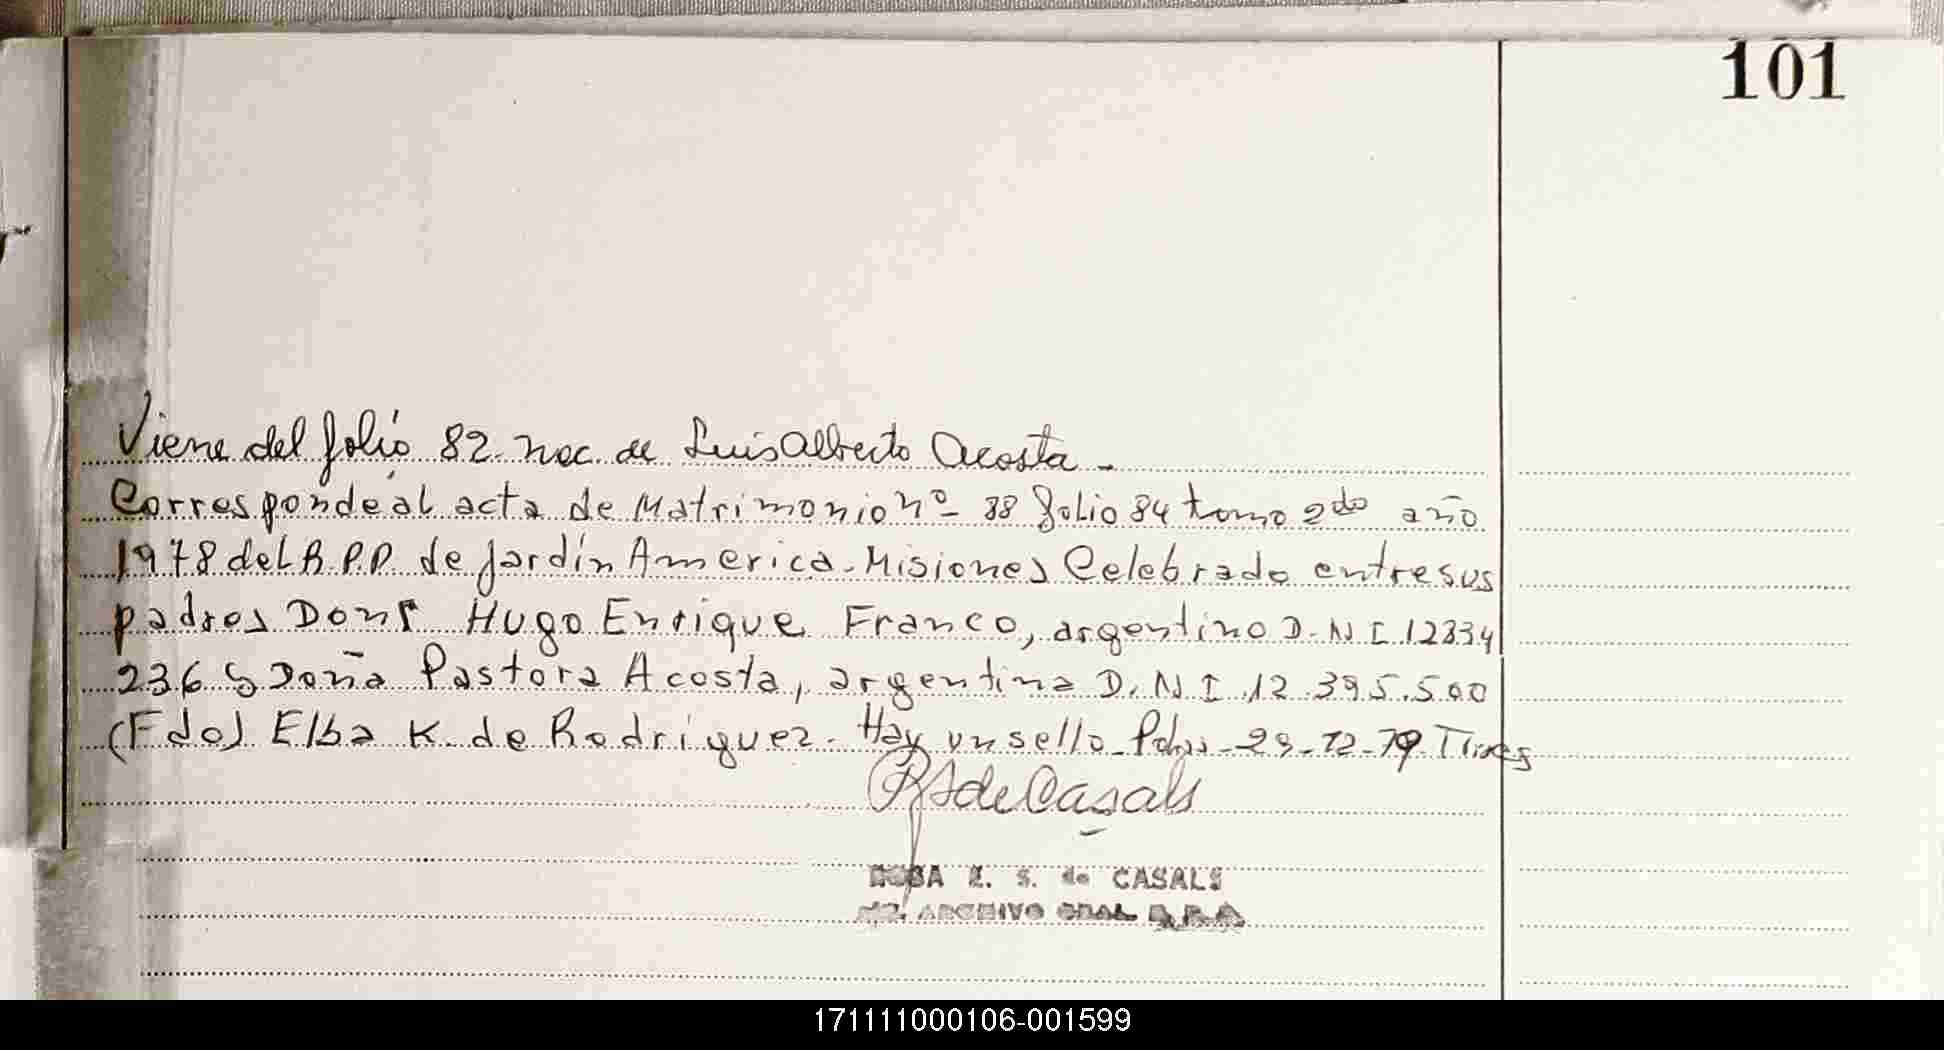 101
Viene del folio 82 nac. de Luis Alberto Acosta.-
Corresponde al acta de Matrimonio nº 88 folio 84 tomo 2do año
1978 del R.P.P. de Jardín America - Misiones Celebrado entre sus
padres Don Hugo Enrique Franco, argentino D.N.I 12334
236 y Doña Pastora Acosta, argentina D.N.I. 12.395.500
(Fdo) Elba K. de Rodriguez - Hay un sello - Pdas - 29-12-79
RS de Casals
ROSA E. S. de CASALS
ARCHIVO GRAL. R.P.P.
171111000106-001599